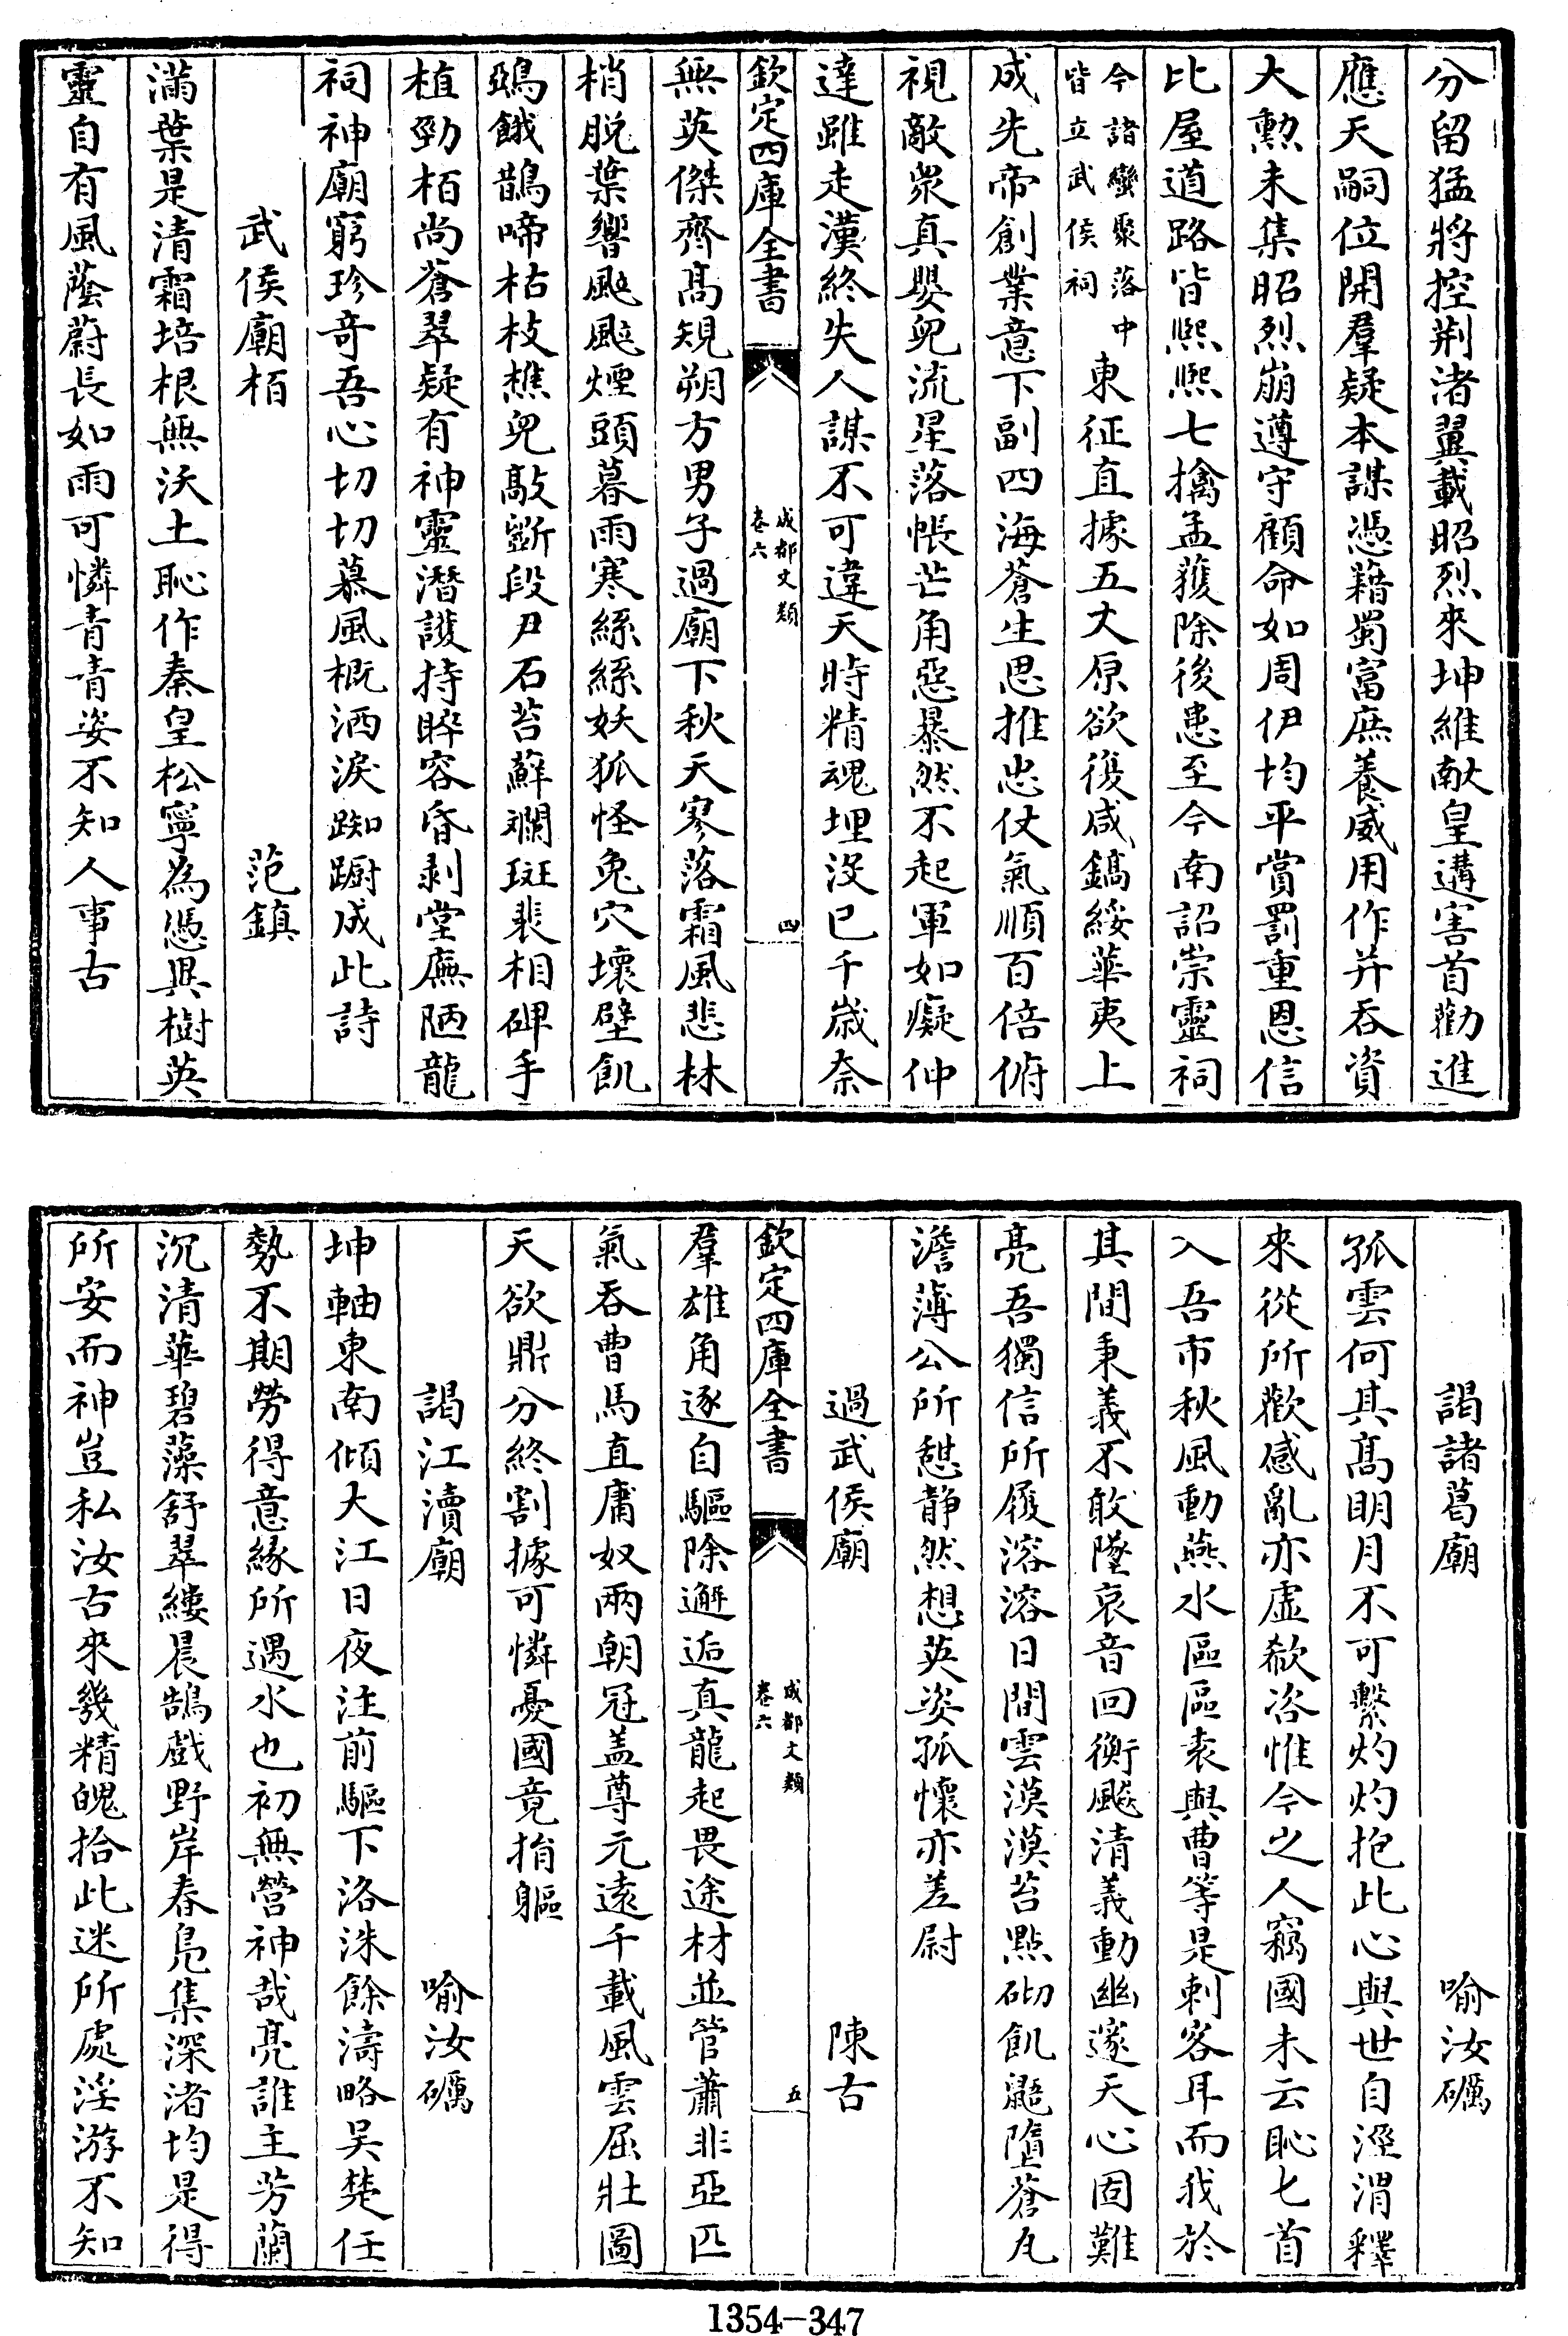 分留猛將控荆渚翼載昭烈來坤維献皇遘害首勸進
應天嗣位開羣疑本謀憑藉蜀富庶養威用作并吞資
大勲未集昭烈崩遵守顧命如周伊均平賞罰重恩信
比屋道路皆熈熈七擒孟獲除後患至今南詔崇靈祠
今諸蠻聚落中
皆立武侯祠
東征直據五丈原欲復咸鎬綏華夷上
成先帝創業意下副四海蒼生思推忠仗氣順百倍俯
視敵衆真嬰兒流星落帳芒角惡暴然不起軍如癡仲
達雖走漢終失人謀不可違天時精魂埋沒已千歲奈
欽定四庫全書
成都文類
卷六
四
無英傑齊髙規朔方男子過廟下秋天寥落霜風悲林
梢脱葉響颼颼煙頭暮雨寒絲絲妖狐怪兔穴壞壁飢
鵶餓鵲啼枯枝樵兒敲斷段尹石苔蘚斕斑裴相碑手
植勁栢尚蒼翠疑有神靈潛護持睟容昏剥堂廡陋龍
祠神廟窮珍奇吾心切切慕風概洒淚踟蹰成此詩
武侯廟栢
范鎮
滿葉是清霜培根無沃土恥作秦皇松寧為憑異樹英
靈自有風蔭蔚長如雨可憐青青姿不知人事古
謁諸葛廟
喻汝礪
孤雲何其髙明月不可繫灼灼抱此心與世自涇渭釋
來從所歡感亂亦虛欷咨惟今之人竊國未云恥匕首
入吾市秋風動燕水區區袁與曹等是刺客耳而我於
其間秉義不敢墜哀音回衡颷清義動幽邃天心固難
亮吾獨信所履溶溶日間雲漠漠苔點砌飢鼯墮蒼瓦
澹薄公所憇静然想英姿孤懷亦差尉
過武侯廟
陳古
欽定四庫全書
成都文類
卷六
五
羣雄角逐自驅除邂逅真龍起畏途材並管蕭非亞匹
氣吞曹馬直庸奴兩朝冠盖尊元遠千載風雲屈壯圖
天欲鼎分終割據可憐憂國竟捐軀
謁江瀆廟
喻汝礪
坤軸東南傾大江日夜注前驅下洛洙餘濤略吴楚任
勢不期勞得意緣所遇水也初無營神哉亮誰主芳蘭
沉清華碧藻舒翠縷晨鵠戲野岸春鳬集深渚均是得
所安而神豈私汝古來幾精魄拾此迷所處淫游不知
1354-347